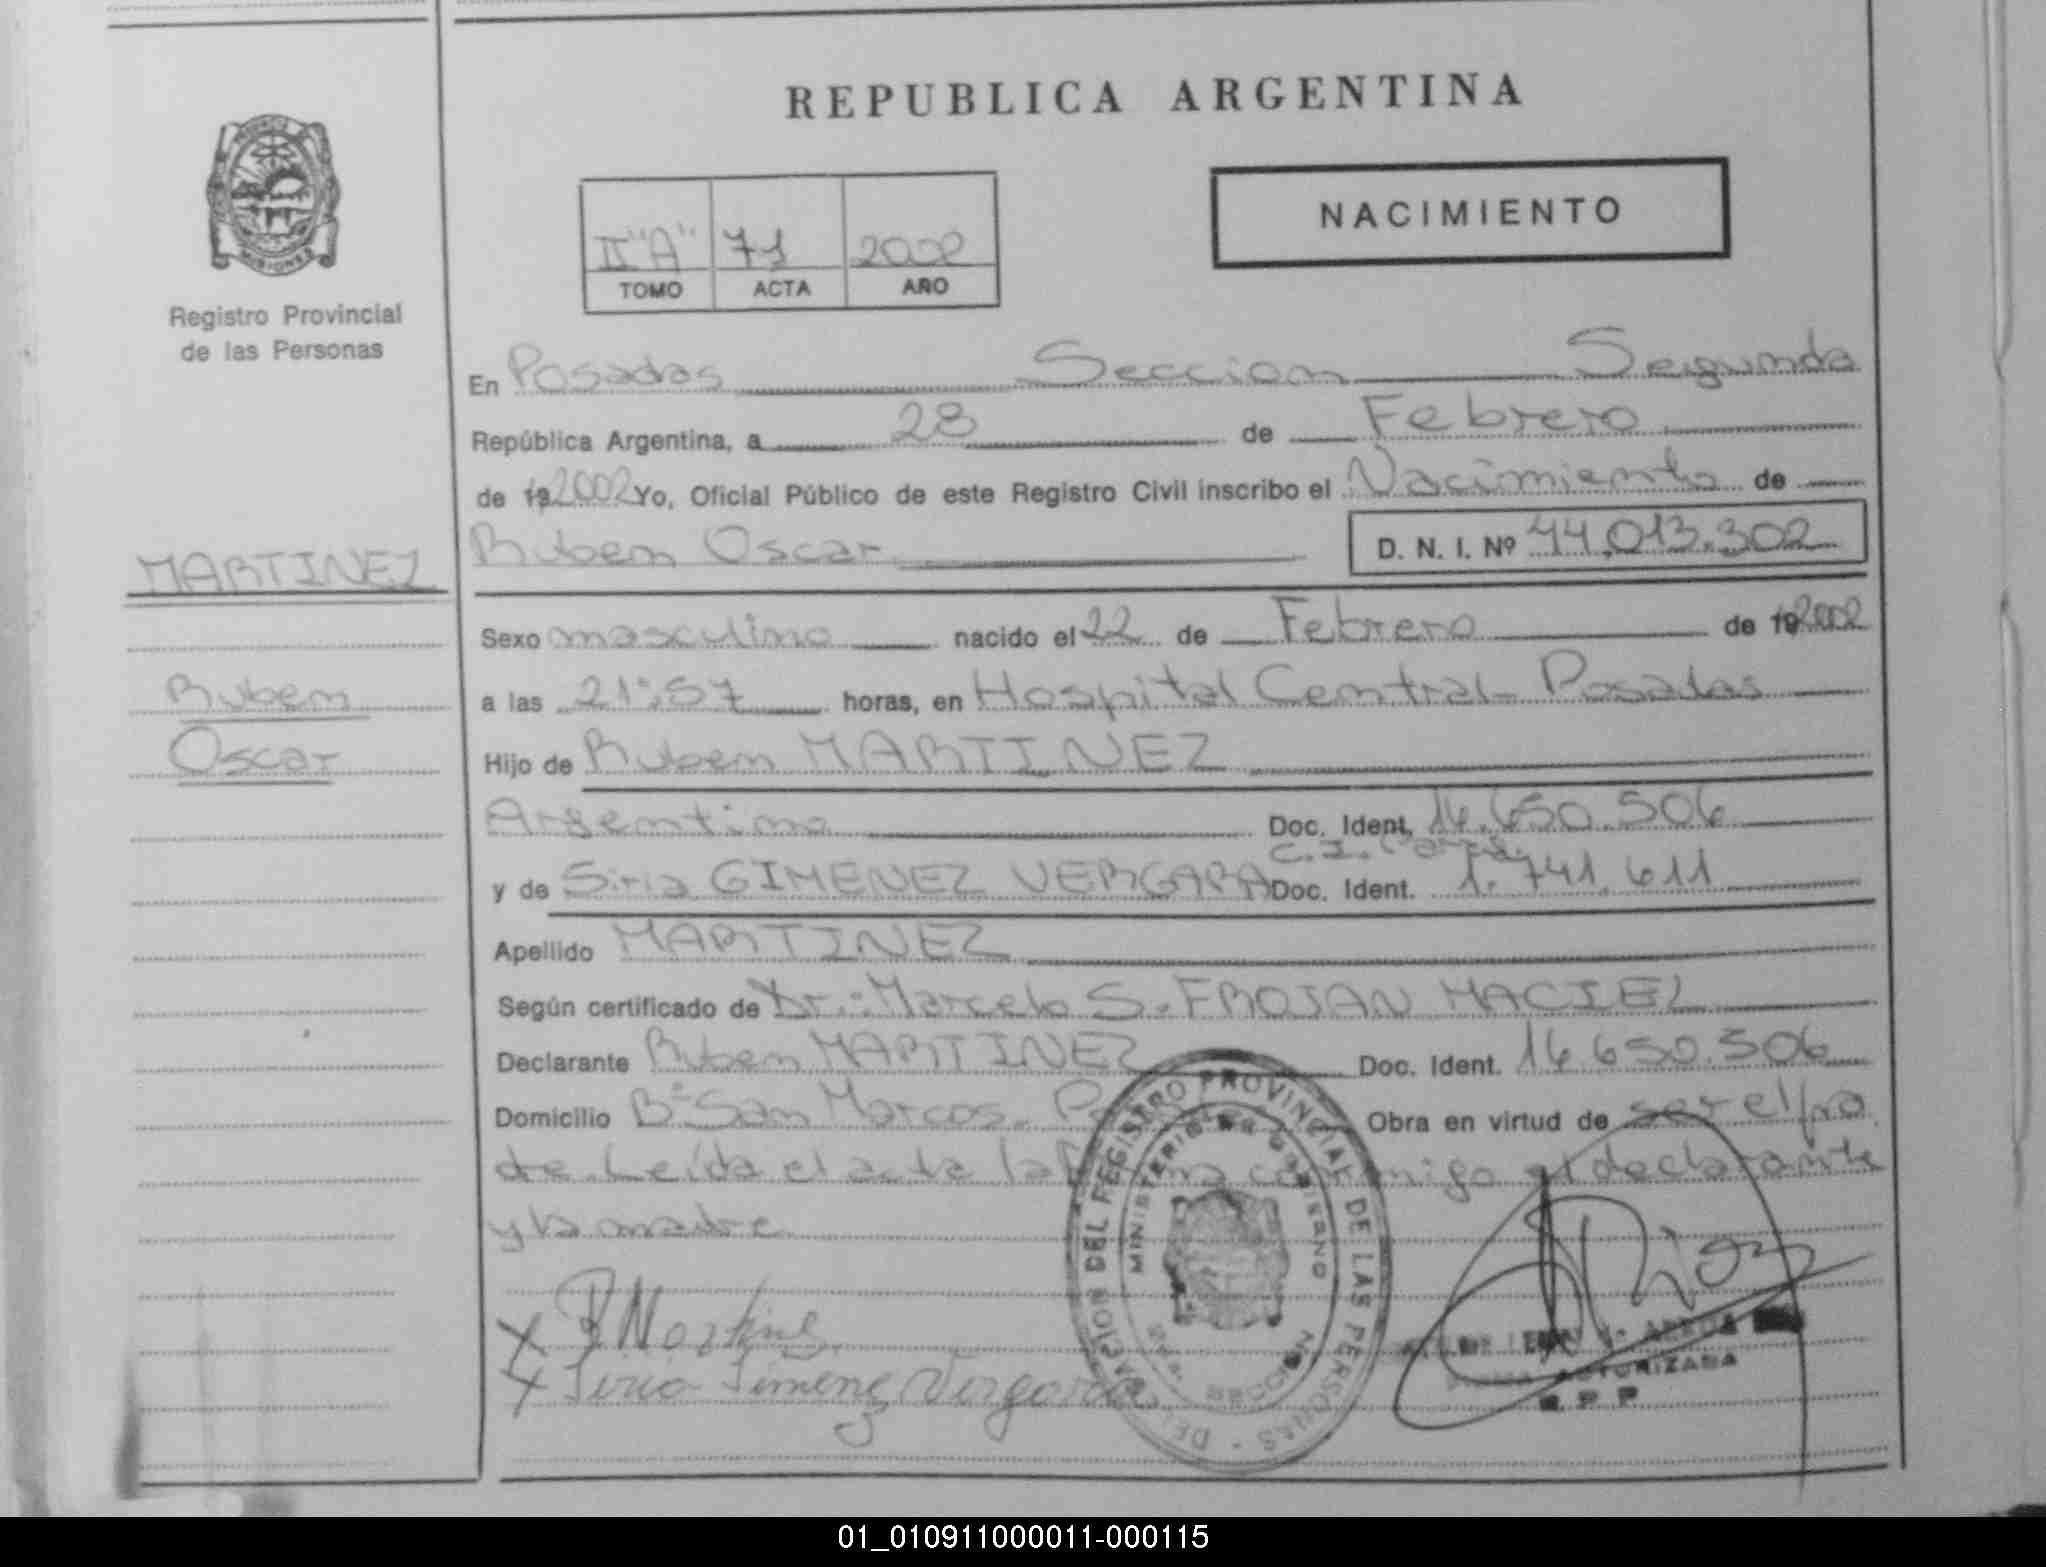 REPUBLICA ARGENTINA
NACIMIENTO
II "A" 71 2002
TOMO ACTA AÑO
MISIONES
Registro Provincial
de las Personas
En Posadas Seccion Segunda
República Argentina, a 28 de Febrero
de 19 2002 Yo, Oficial Público de este Registro Civil inscribo el Nacimiento de
Ruben Oscar D. N. I. Nº 44.013.302
MARTINEZ
Ruben
Oscar
Sexo masculino nacido el 22 de Febrero de 19 2002
a las 21:57 horas, en Hospital Central - Posadas
Hijo de Ruben MARTINEZ
Argentino Doc. Ident. 14.650.506
C.I.
y de Siria GIMENEZ VERGARA Doc. Ident. 1.741.611
Apellido MARTINEZ
Según certificado de Dr.: Marcelo S. FROJAN MACIEL
Declarante Ruben MARTINEZ Doc. Ident. 14.650.506
Domicilio Bº San Marcos - Obra en virtud de ser el
de. Leída el acta la conmigo el declarante
y la madre
X R Martinez
X Siria Jimenez Vergara
DELEGACION DEL REGISTRO PROVINCIAL DE LAS PERSONAS
MINISTERIO DE GOBIERNO
AUTORIZADA
01_010911000011-000115